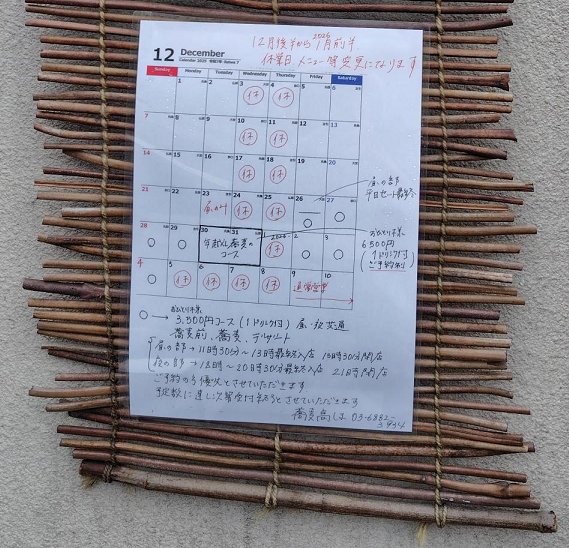 12月後半から2026 1月前半
休業日、メニュー等変更になります
12 December
Calendar 2025 令和7年
Sunday Monday Tuesday Wednesday Thursday Friday Saturday
1 2 3 休 4 休 5 6
7 8 9 10 休 11 休 12 13
14 15 16 17 休 18 休 19 20
21 22 23 昼のみ 24 休 25 休 26 ○ 27 ○
昼の部
平日セット最終
28 ○ 29 ○ 30 31 年越し蕎麦のコース 2026 休 2 ○ 3 ○
おひとり様
6500円
(1ドリンク付
ご予約制)
4 ○ 5 休 6 休 7 休 8 休 9 通常営業 10
おひとり様
○→ 3,500円コース(1ドリンク付) 昼・夜共通
蕎麦前、蕎麦、デザート
昼の部→11時30分〜13時最終入店 15時30分閉店
夜の部→18時〜20時30分最終入店 21時閉店
ご予約の方優先とさせていただきます
予定数に達し次第受付終了とさせていただきます
蕎麦 高しま 03-6882-
3934